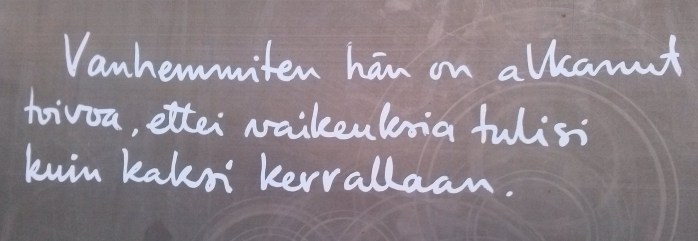 Vanhemmiten hän on alkanut
toivoa, ettei vaikeuksia tulisi
kuin kaksi kerrallaan.